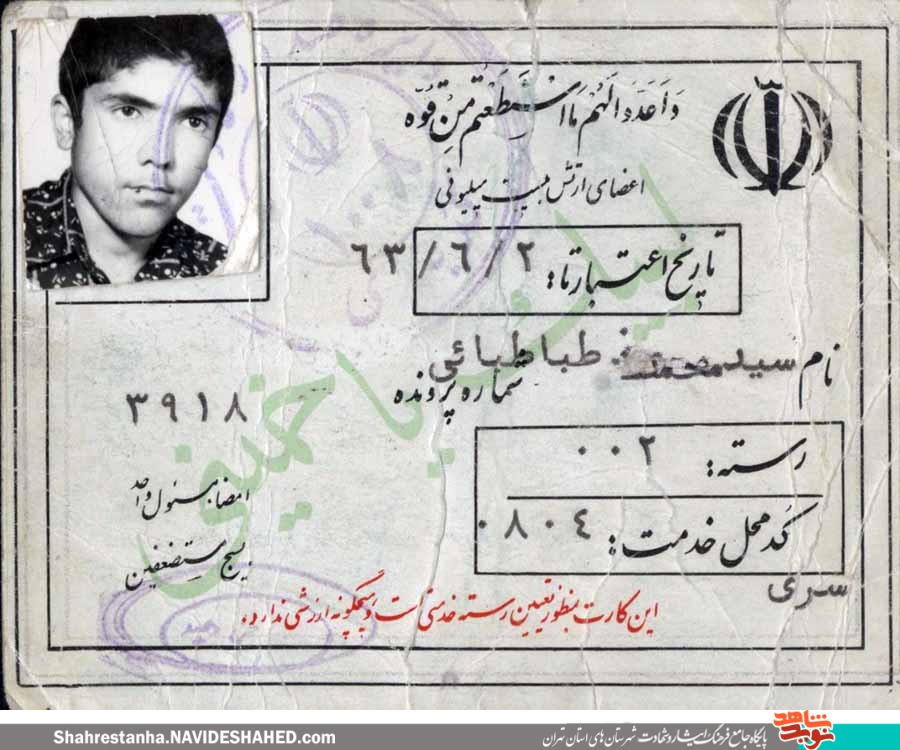 وَاَعِدّوا لَهُم مَا اسْتَطَعْتُم مِنْ قُوَّه
اعضای ارتش بیست میلیونی
تاریخ اعتبار تا: ٦٣/٦/٢
نام سید محمد طباطبائی
شماره پرونده ٣٩١٨
رسته: ٠٠٢
کد محل خدمت: ٠٨٠٤
سری
امضا مسئول واحد
بسیج مستضعفین
لبیک یا خمینی
این کارت بمنظور تعیین رسته خدمتی است و هیچگونه ارزشی ندارد.
Shahrestanha.NAVIDESHAHED.com
پایگاه جامع فرهنگ ایثار و شهادت شهرستان های استان تهران
نوید شاهد